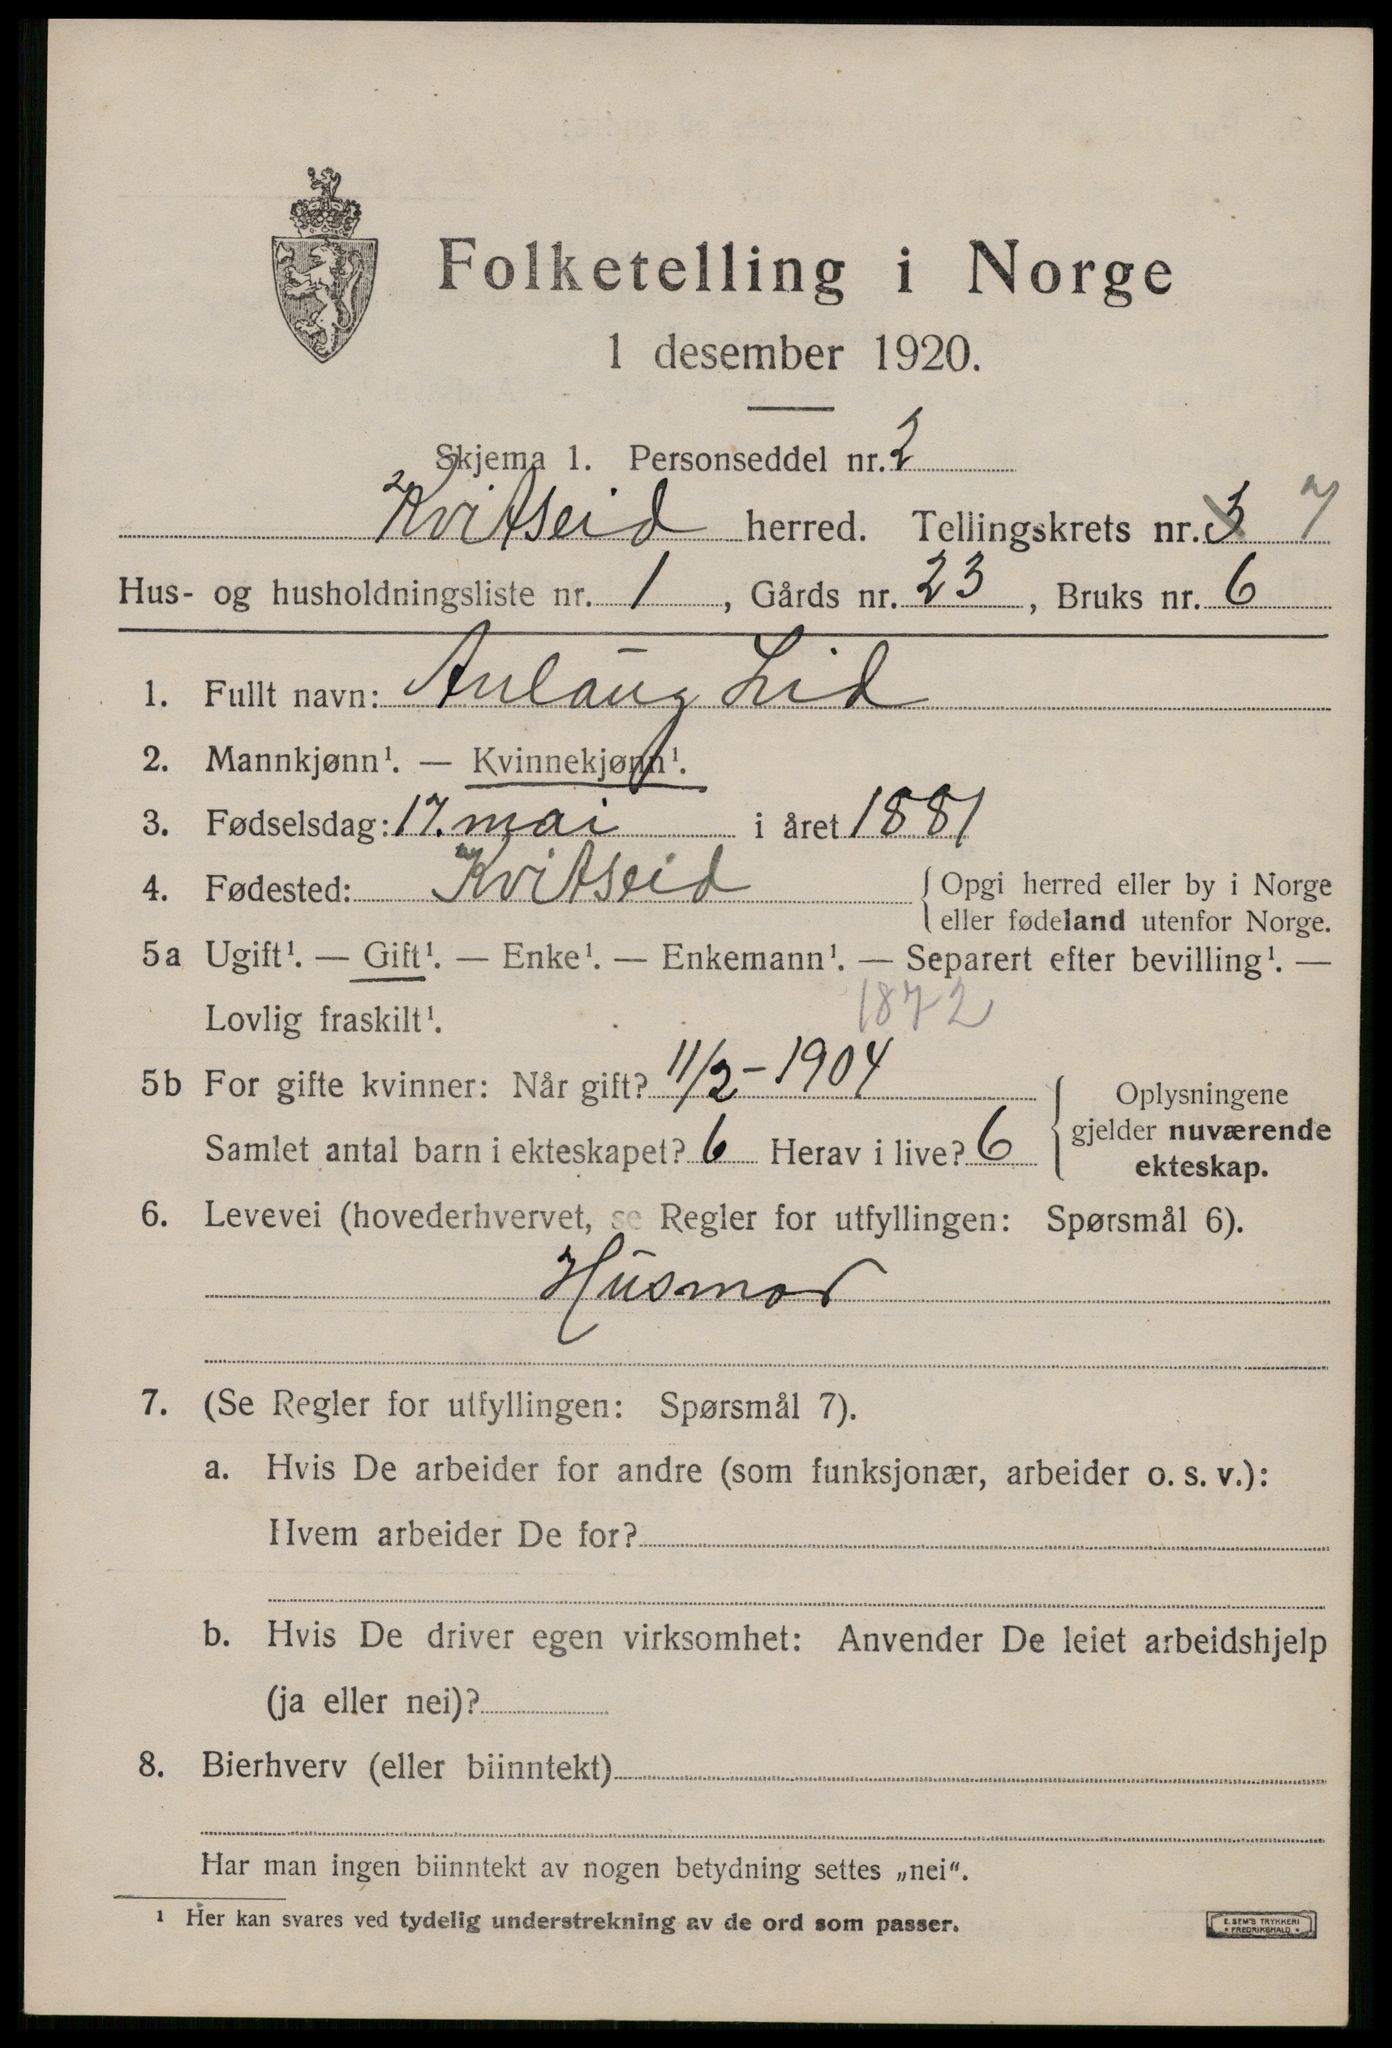 Folketelling i Norge
1 desember 1920.
Skjema 1. Personseddel nr. 2
Kvitseid herred. Tellingskrets nr. 3 7
Hus- og husholdningsliste nr. 1, Gårds nr. 23, Bruks nr. 6
1. Fullt navn: Aulaug Lid
2. Mannkjønn¹. — Kvinnekjønn¹.
3. Fødselsdag: 17. mai i året 1881
4. Fødested: Kvitseid { Opgi herred eller by i Norge
eller fødeland utenfor Norge.
5a Ugift¹. — Gift¹. — Enke¹. — Enkemann¹. — Separert efter bevilling¹. —
Lovlig fraskilt¹. 1872
5b For gifte kvinner: Når gift? 11/2 - 1904
Samlet antal barn i ekteskapet? 6 Herav i live? 6
Oplysningene
gjelder nuværende
ekteskap.
6. Levevei (hovederhvervet, se Regler for utfyllingen: Spørsmål 6).
Husmor
7. (Se Regler for utfyllingen: Spørsmål 7).
a. Hvis De arbeider for andre (som funksjonær, arbeider o. s. v.):
Hvem arbeider De for?
b. Hvis De driver egen virksomhet: Anvender De leiet arbeidshjelp
(ja eller nei)?
8. Bierhverv (eller biinntekt)
Har man ingen biinntekt av nogen betydning settes „nei“.
¹ Her kan svares ved tydelig understrekning av de ord som passer.
E. SEM'S TRYKKERI
* FREDRIKSHALD *